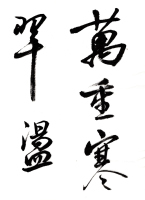 萬重寒
翠溫